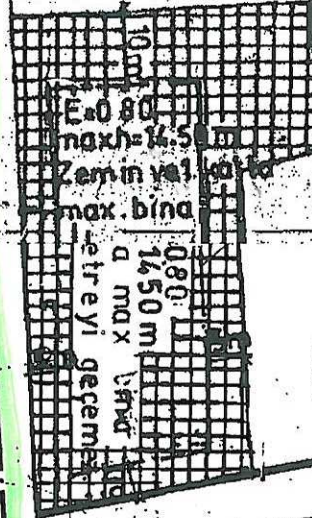 10 m
E=0.80
maxh=14.50 m
Zemin ve 1. katta
max. bina
0.80
1450 m
a max bina
etreyi geçeme